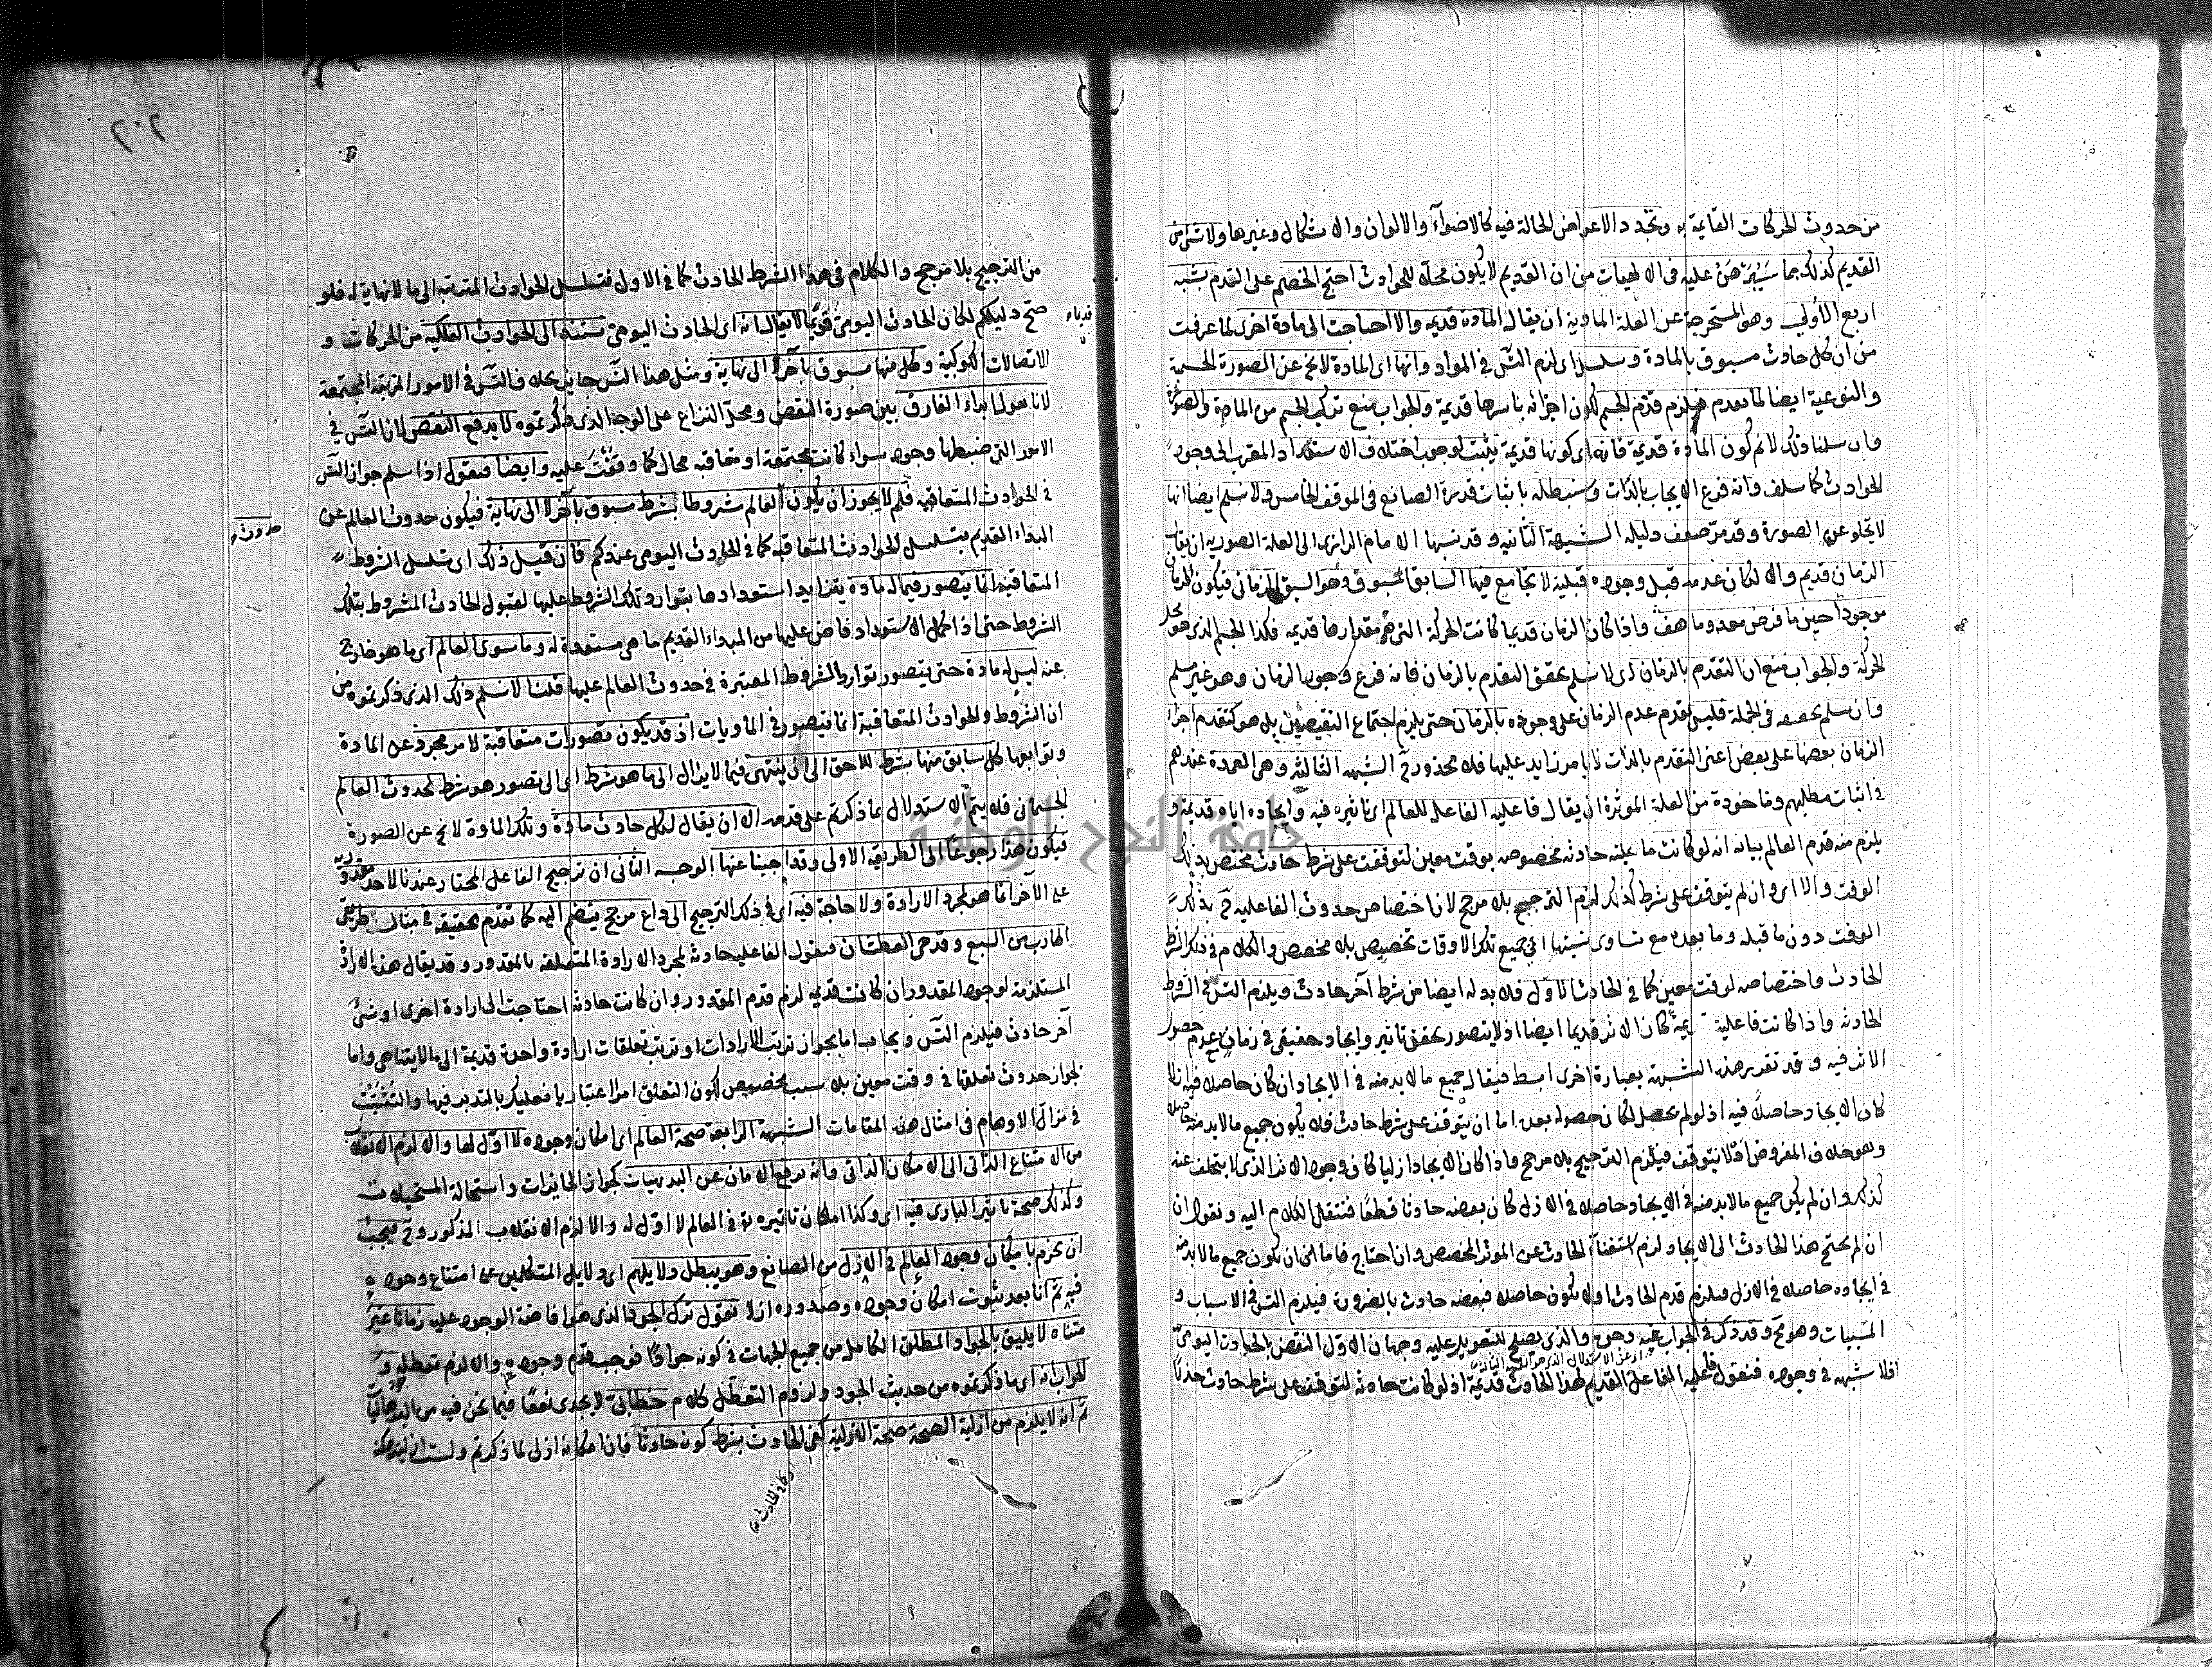 من حدوث الحركات القايمة به وتجدد الاعراض الحالة فيه كالاضوآء والالوان والاشكال وغيرها ولا شئ من
القديم كذلك بما سيبرهن عليه فى الالهيات من ان القديم لا يكون محلا للحوادث احتج الخصم على القدم بشبه
اربع الأولى وهو المستخرجة عن العلة المادية ان يقال المادة قديمة والا احتاجت الى مادة اخرى لما عرفت
من ان كل حادث مسبوق بالمادة وتسلسل اى لزم التس في المواد وانها اى المادة لا تخ عن الصورة الجسمية
والنوعية ايضا لما تقدم فيلزم قدم الجسم لكون اجزائه باسرها قديمة والجواب منع تركب الجسم من المادة والصورة
وان سلمنا ذلك لا نم كون المادة قديمة فانه اى كونها قديمة يثبت لوجوب اختلاف الاستعداد المقرب الى وجود
الحوادث كما سلف وانه فرع الايجاب بالذات وسنبطله باثبات قدرة الصانع في الموقف الخامس ولا نسلم ايضا انها
لا تخلو عن الصورة وقد مر ضعف دليله الشبهة الثانية وقد نسبها الامام الرازى الى العلة الصورية ان يقال
الزمان قديم والا لكان عدمه قبل وجوده قبلية لا يجامع فيها السابق المسبوق وهو السبق الزمانى فيكون الزمان
موجودا حين ما فرض معدوما هف واذا كان الزمان قديما كانت الحركة التى هو مقدارها قديمة فكذا الجسم الذى هو محل
الحركة والجواب منع ان التقدم بالزمان اى لا نسلم تحقق التقدم بالزمان فانه فرع وجود الزمان وهو غير مسلم
وان سلم تحققه في الجملة فليس تقدم عدم الزمان على وجوده بالزمان حتى يلزم اجتماع النقيضين بل هو كتقدم اجزاء
الزمان بعضها على بعض اعنى التقدم بالذات لا بامر زايد عليها فلا محذور فيه الشبهة الثالثة وهى العمدة عندهم
في اثبات مطلبهم وماخوذة من العلة الموثرة ان يقال فاعلية الفاعل للعالم اى تاثيره فيه وايجاده اياه قديمة و
يلزم منه قدم العالم بيانه انه لو كانت فاعليته حادثة مخصوصة بوقت معين لتوقفت على شرط حادث مختص بذلك
الوقت والا اى وان لم يتوقف على شرط كذلك لزم الترجيح بلا مرجح لان اختصاص حدوث الفاعلية ح بذلك
الوقت دون ما قبله وما بعده مع تساوى نسبتها الى جميع تلك الاوقات تخصيص بلا مخصص والكلام في ذلك الشرط
الحادث واختصاصه لوقت معين كما في الحادث الاول فلا بد له ايضا من شرط آخر حادث ويلزم التس في الشروط
الحادثة واذا كانت فاعلية قديمة كان الاثر قديما ايضا اذ لا يتصور تحقق تاثير وايجاد حقيقى في زمان مع عدم حصول
الاثر فيه وقد تقرر هذه الشبهة بعبارة اخرى ابسط فيقال جميع ما لا بد منه في الايجاد ان كان حاصلا فيه ازلا
كان الايجاد حاصلا فيه اذ لو لم يحصل لكان حصوله بعد اما ان يتوقف على شرط حادث فلا يكون جميع ما لا بد منه حاصلا
وهو خلاف المفروض او لا يتوقف فيلزم الترجيح بلا مرجح واذا كان الايجاد ازليا كان وجود الاثر الذى لا يتخلف عنه
كذلك وان لم يكن جميع ما لا بد منه في الايجاد حاصلا في الازل كان بعضه حادثا قطعا فننتقل الكلام اليه ونقول ان
ان لم يحتج هذا الحادث الى الايجاد لزم استغناء الحادث عن الموثر المخصص وان احتاج فاما ان يكون جميع ما لا بد منه
في ايجاده حاصلا في الازل فيلزم قدم الحادث او لا يكون حاصلا فبعضه حادث بالضرورة فيلزم التس في الاسباب و
المسببات وهو مح وقد ذكر في الجواب عنه وجوه والذى يصلح للتعويل عليه وجهان الاول النقض بالحادث اليومى
اذ لا شبهة في وجوده فنقول فاعلية الفاعل القديم لهذا الحادث قديمة اذ لو كانت حادثة لتوقفت على شرط حادث حذرا
٢٠٢
من الترجيح بلا مرجح والكلام في هذا الشرط الحادث كما في الاول فتسلسل الحوادث المترتبة الى ما لا نهاية له فلو
صح دليلكم لكان الحادث اليومى قديما لا يقال انه اى الحادث اليومى يستند الى الحوادث الفلكية من الحركات و
الاتصالات الكوكبية وكل منها مسبوق بآخر لا الى نهاية ومثل هذا التس جايز بخلاف التس في الامور المترتبة المجتمعة
لانا نقول ابداء الفارق بين صورة النقض ومحل النزاع على الوجه الذى ذكرتموه لا يدفع النقض لان التس في
الامور التى ضبطها وجود سواء كانت مجتمعة او متعاقبة محال كما وقفت عليه وايضا فنقول اذا سلم جواز التس
في الحوادث المتعاقبة فلم لا يجوز ان يكون العالم مشروطا بشرط مسبوق بآخر لا الى نهاية فيكون حدوث العالم عن
المبداء القديم بتسلسل الحوادث المتعاقبة كما في الحادث اليومى عندكم فان قيل ذلك اى تسلسل الشروط
المتعاقبة انما يتصور فيما له مادة يتزايد استعدادها بتوارد تلك الشروط عليها لقبول الحادث المشروط بتلك
الشروط حتى اذا كمل الاستعداد فاض عليها من المبداء القديم ما هى مستعدة له وما سوى العالم اى ما هو خارج
عنه ليس له مادة حتى يتصور توارد الشروط المعتبرة في حدوث العالم عليها قلنا لا نسلم ذلك الذى ذكرتموه من
ان الشروط والحوادث المتعاقبة انما يتصور في الماديات اذ قد يكون تصورات متعاقبة لامر مجرد عن المادة
وتوابعها كل سابق منها شرط للاحق الى ان ينتهى فيما لا يزال الى ما هو شرط اى الى تصور هو شرط لحدوث العالم
الجسمانى فلا يتم الاستدلال بما ذكرتم على قدمه الا ان يقال لكل حادث مادة وتلك المادة لا تخ عن الصورة
فيكون هذا رجوعا الى الطريقة الاولى وقد اجبنا عنها الوجه الثانى ان ترجيح الفاعل المختار عندنا لاحد مقدوريه
على الآخر انما هو بمجرد الارادة ولا حاجة فيه اى في ذلك الترجيح الى داع مرجح ينضم اليه كما تقدم تحقيقه في مثالى طريقى
الهارب من السبع وقدحى العطشان فنقول الفاعلية حادثة بمجرد الارادة المتعلقة بالمقدور وقد يقال هذه الارادة
المستلزمة لوجود المقدور ان كانت قديمة لزم قدم المقدور وان كانت حادثة احتاجت الى ارادة اخرى او شئ
آخر حادث فيلزم التس ويجاب اما بجواز ترتب الارادات او ترتب تعلقات ارادة واحدة قديمة الى ما لا يتناهى واما
بجواز حدوث تعلقها في وقت معين بلا سبب مخصص لكون التعلق امرا اعتباريا فعليك بالتدبر فيها والتثبت
في مزال الاوهام في امثال هذه المقامات الشبهة الرابعة صحة العالم اى امكان وجوده لا اول لها والا لزم الانقلاب
من الامتناع الذاتى الى الامكان الذاتى وانه يرفع الامان عن البديهيات كجواز الجايزات واستحالة المستحيلات
وكذلك صحة تاثير البارى فيه اى وكذا امكان تاثيره تع في العالم لا اول له والا لزم الانقلاب المذكور وح فيجب
ان نجزم بامكان وجود العالم في الازل من الصانع وهو يبطل دلايلهم اى دلايل المتكلمين على امتناع وجوده
فيه ثم انا بعد ثبوت امكان وجوده وصدوره ازلا نقول ترك الجود الذى هو افاضة الوجود عليه زمانا غير
متناه لا يليق بالجواد المطلق الكامل من جميع الجهات في كونه جوادا فوجب قدم وجوده والا لزم تعطله
الجواب انه اى ما ذكرتموه من حديث الجود ولزوم التعطل كلام خطابى لا يجدى نفعا فيما نحن فيه من البرهانيات
ثم انه لا يلزم من ازلية الصحة صحة الازلية كفى الحادث بشرط كونه حادثا فان امكانه ازلى لما ذكرتم وليست ازليته ممكنة
حدوث